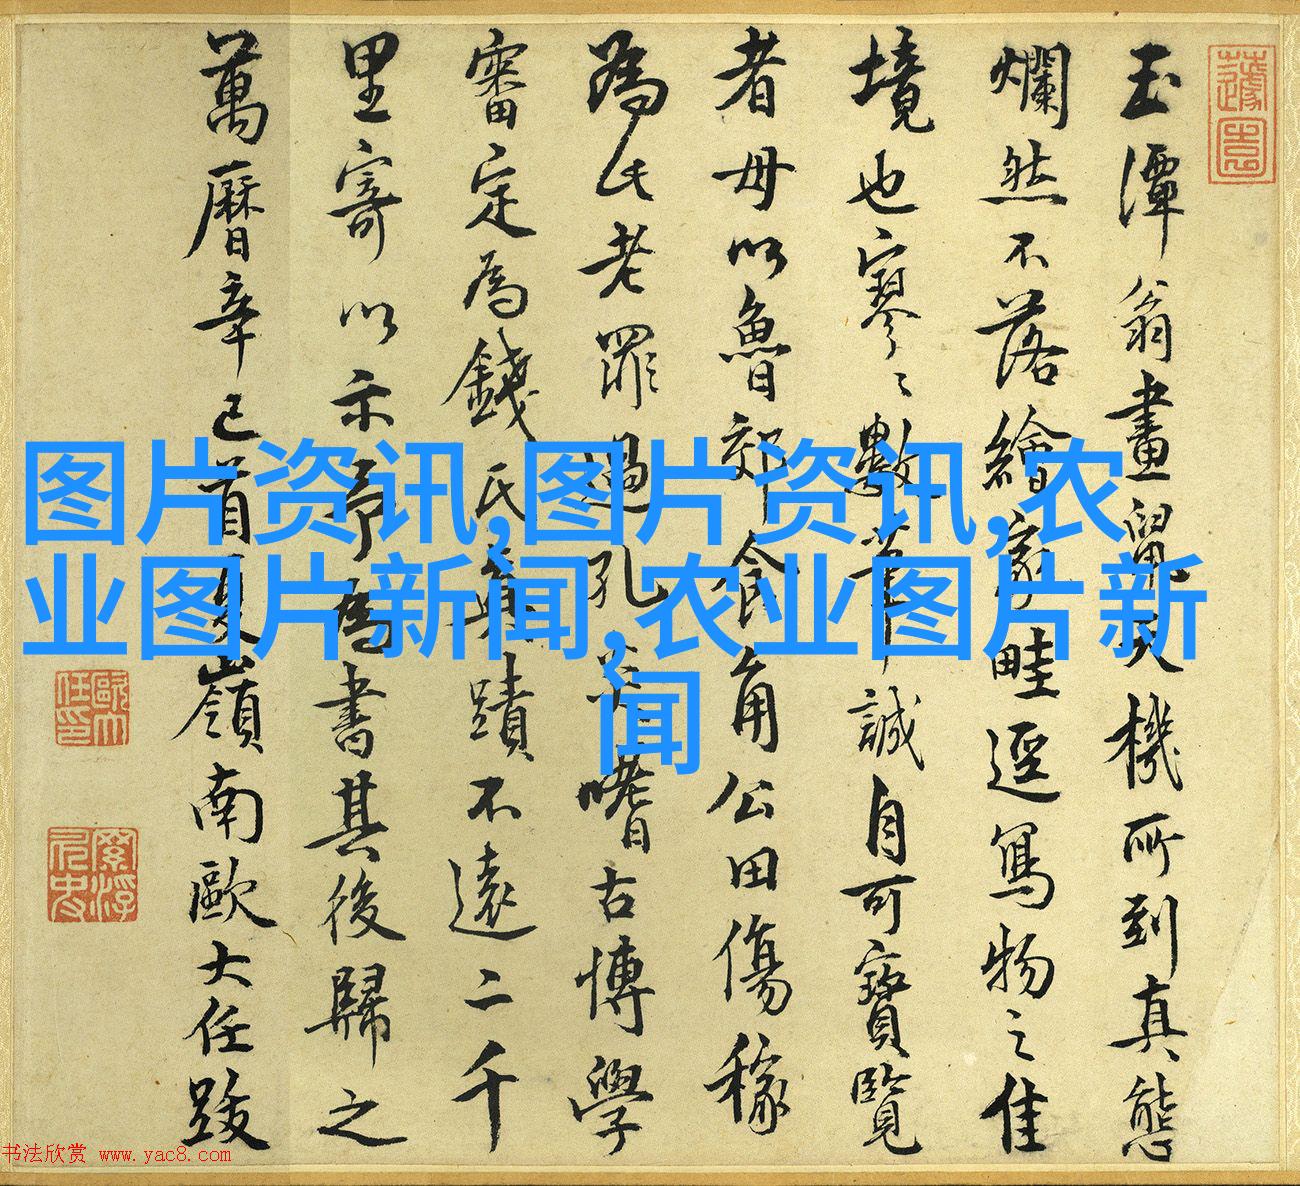 玉潭翁畫鼠天機所到真態
爛然不落繪家畦逕寫物之佳
境也寥〻數筆誠自可寶覽
者毋以魯郊食角公田傷稼
為氏老罪過孔炎嗜古博學
審定為錢氏真蹟不遠二千
里寄以示予為書其後歸之
萬曆辛巳首夏嶺南歐大任跋
图片资讯,图片资讯,农
业图片新闻,农业图片新
闻
书法欣赏 www.yac8.com